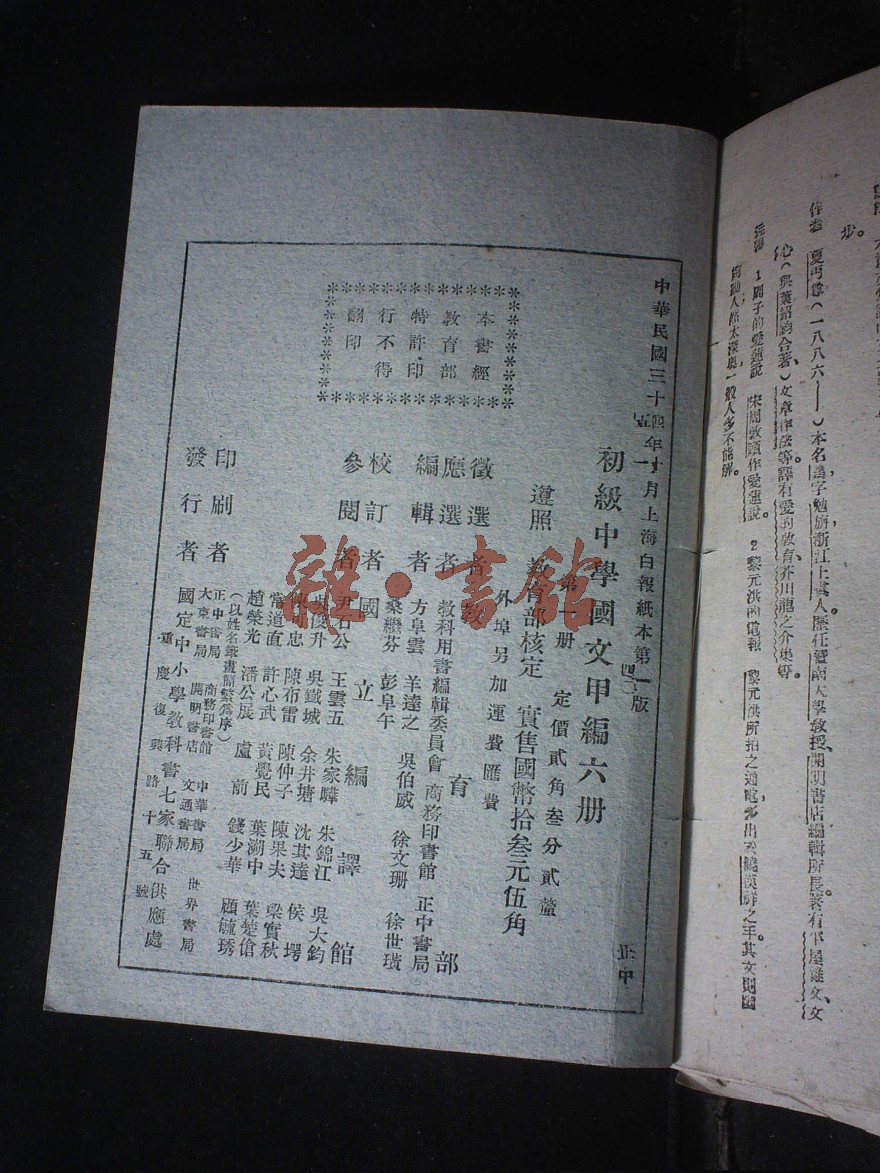 步。
作者　夏丏尊（一八八六——）本名鑄字勉旃浙江上虞人歷任暨南大學教授、開明書店編輯所長著有平屋雜文、文
心（與葉紹鈞合著、）文章作法等。譯有愛的教育、芥川龍之介集等。
注釋　1周子的愛蓮說　宋周敦頤作愛蓮說。　2黎元洪的電報　黎元洪所拍之通電多出於饒漢祥之手。其文則
一般人多不能解。
中華民國三十四年十月上海白報紙本第一版
五
一
四二
正中
初級中學國文甲編六册
第一册　定價貳角叁分貳釐
遵照　教育部核定　實售國幣拾叁元伍角
外埠另加運費匯費
本書經
教育部
特許印
行不得
翻印
徵選者　教育部
應選者　教科用書編輯委員會　商務印書館　正中書局
編輯者　方阜雲　羊達之　吳伯威　徐文珊　徐世璜
桑繼芬　彭阜午
校訂者　國立編譯館
參閱者　尹石公　王雲五　朱家驊　朱錦江　吳大鈞
吳俊升　吳鐵城　余井塘　沈其達　侯堮
陳可忠　陳布雷　陳仲子　陳果夫　梁實秋
常道直　許心武　黃覺民　葉溯中　葉楚傖
趙榮光　潘公展　盧前　錢少華　顧毓琇
（以姓名筆畫簡繁爲序）
印刷者　正中書局　商務印書館　中華書局　世界書局
大東書局　開明書店　文通書局
發行者　國定中小學教科書七家聯合供應處
重慶復興路十五號
雜·書館